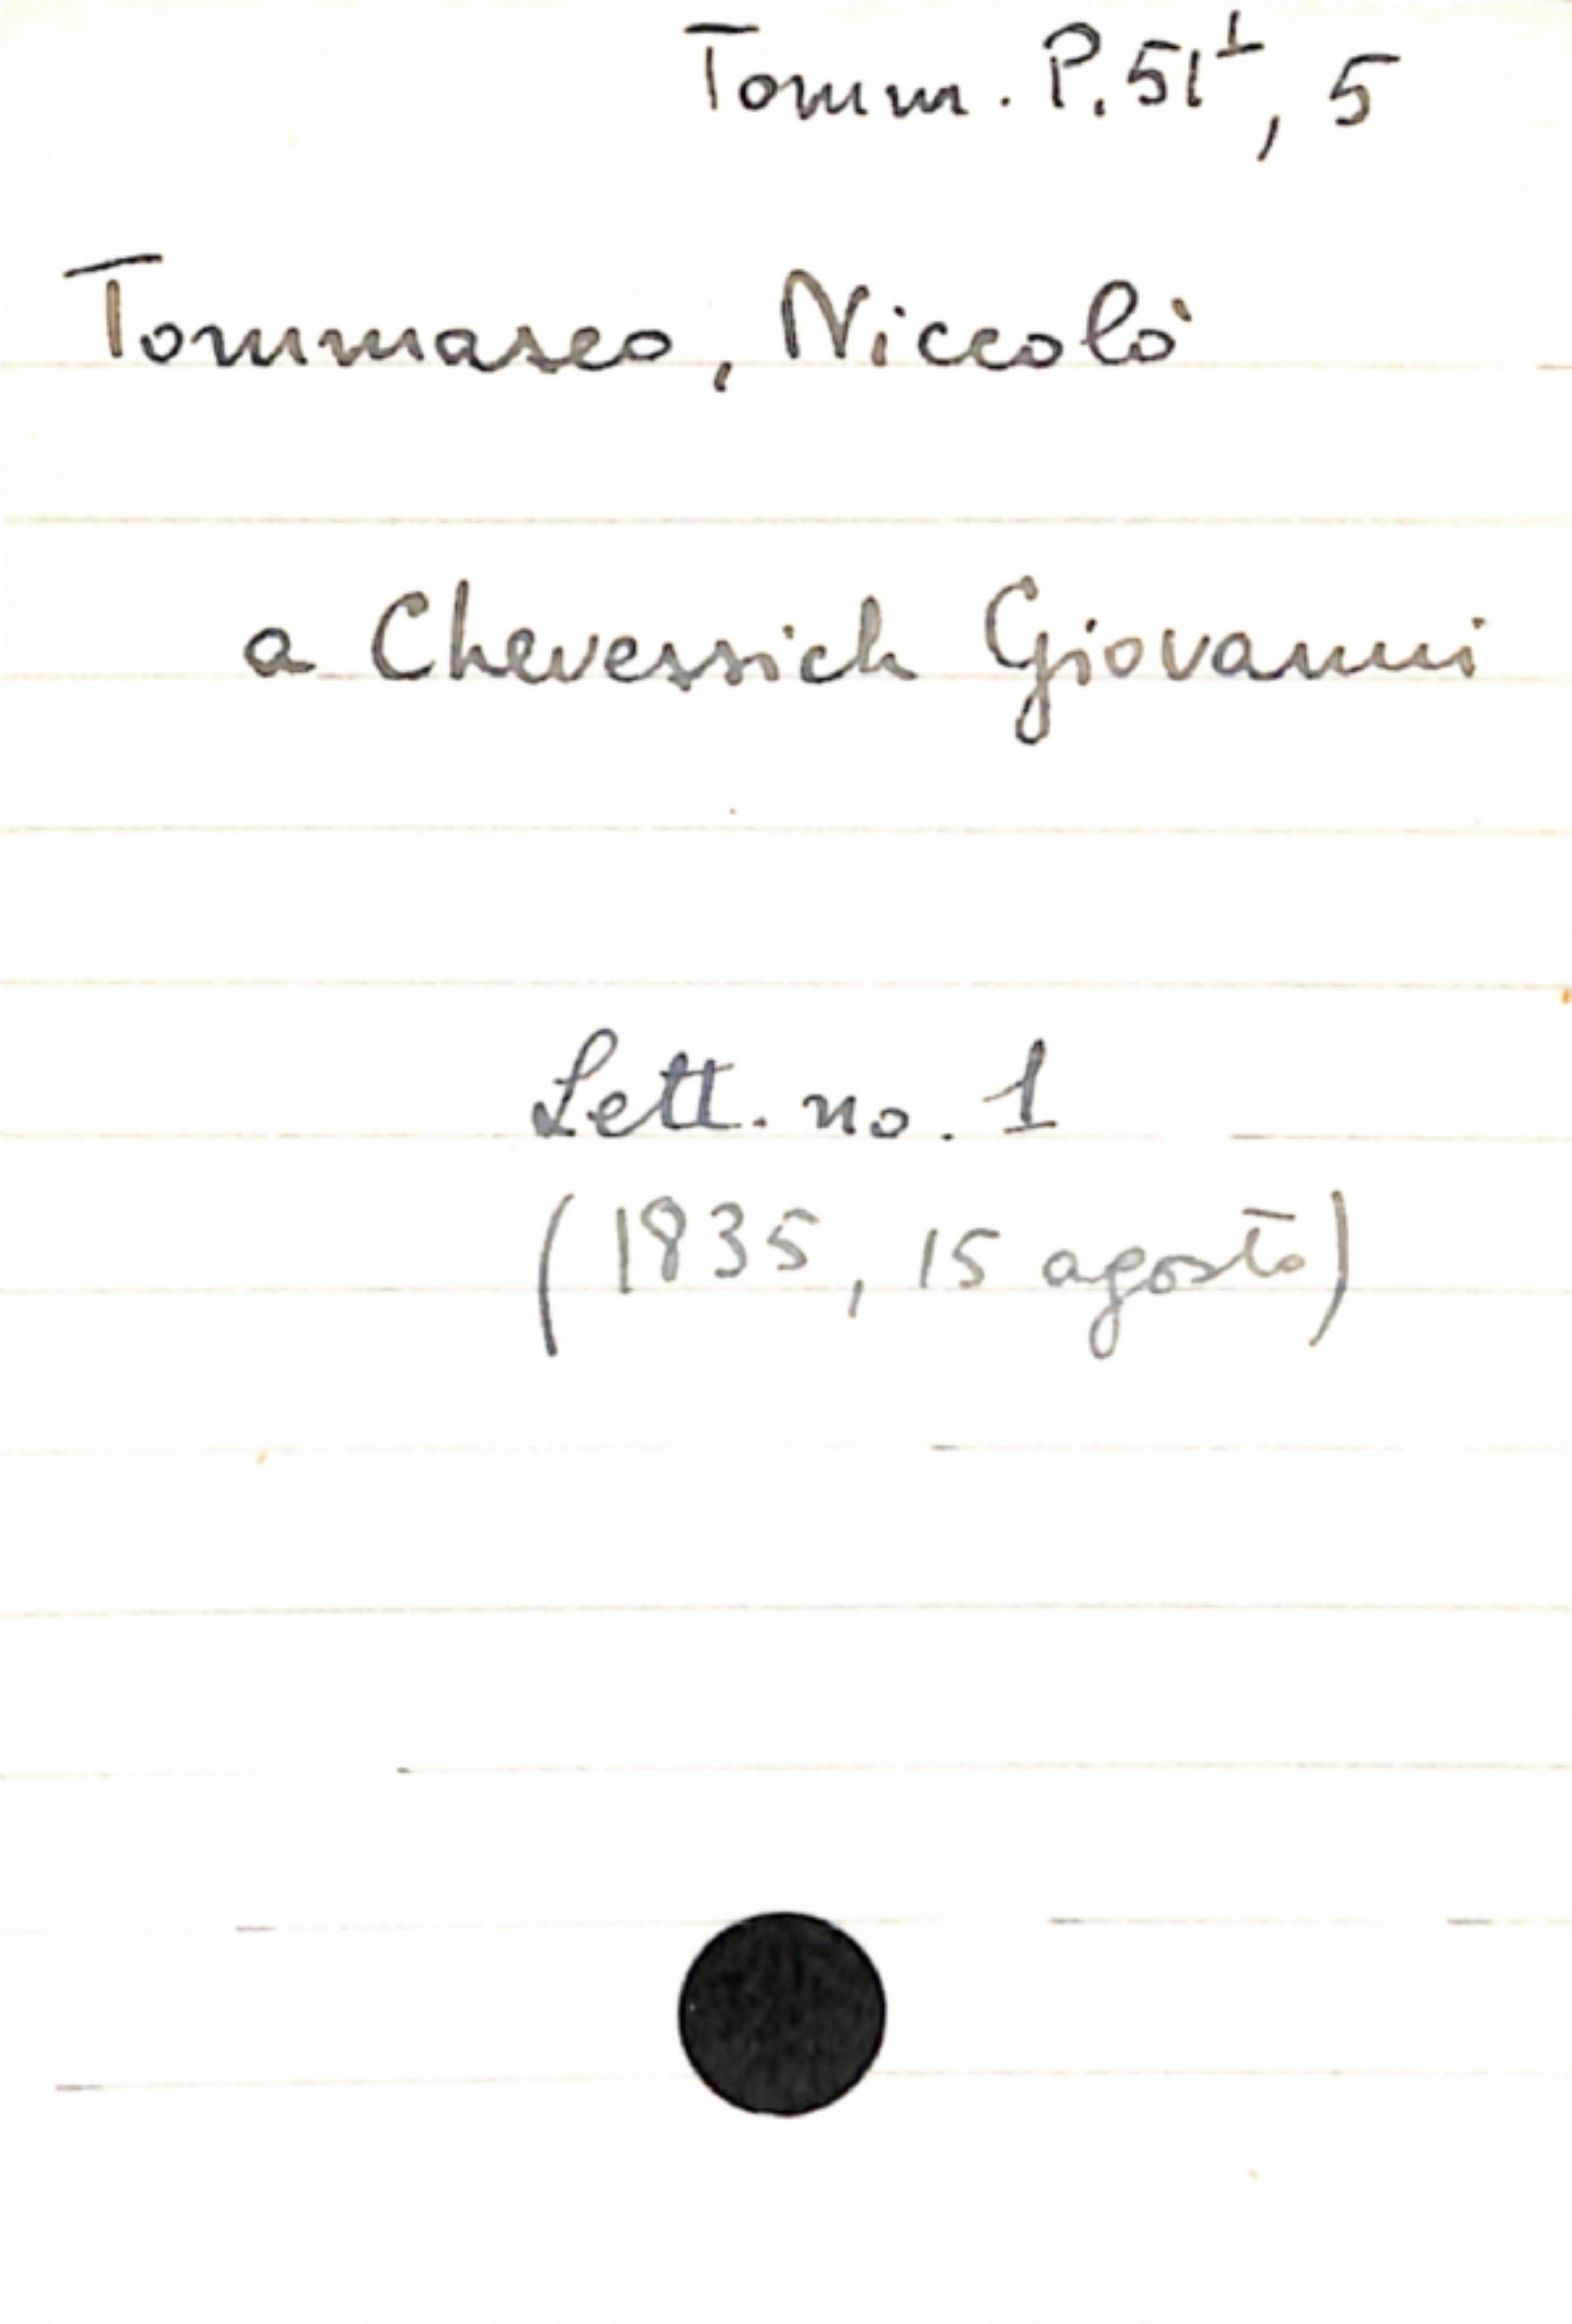 Tomm. P.51¹, 5
Tommaseo, Niccolò
a Chevessich Giovanni
Lett. no. 1
(1835, 15 agosto)